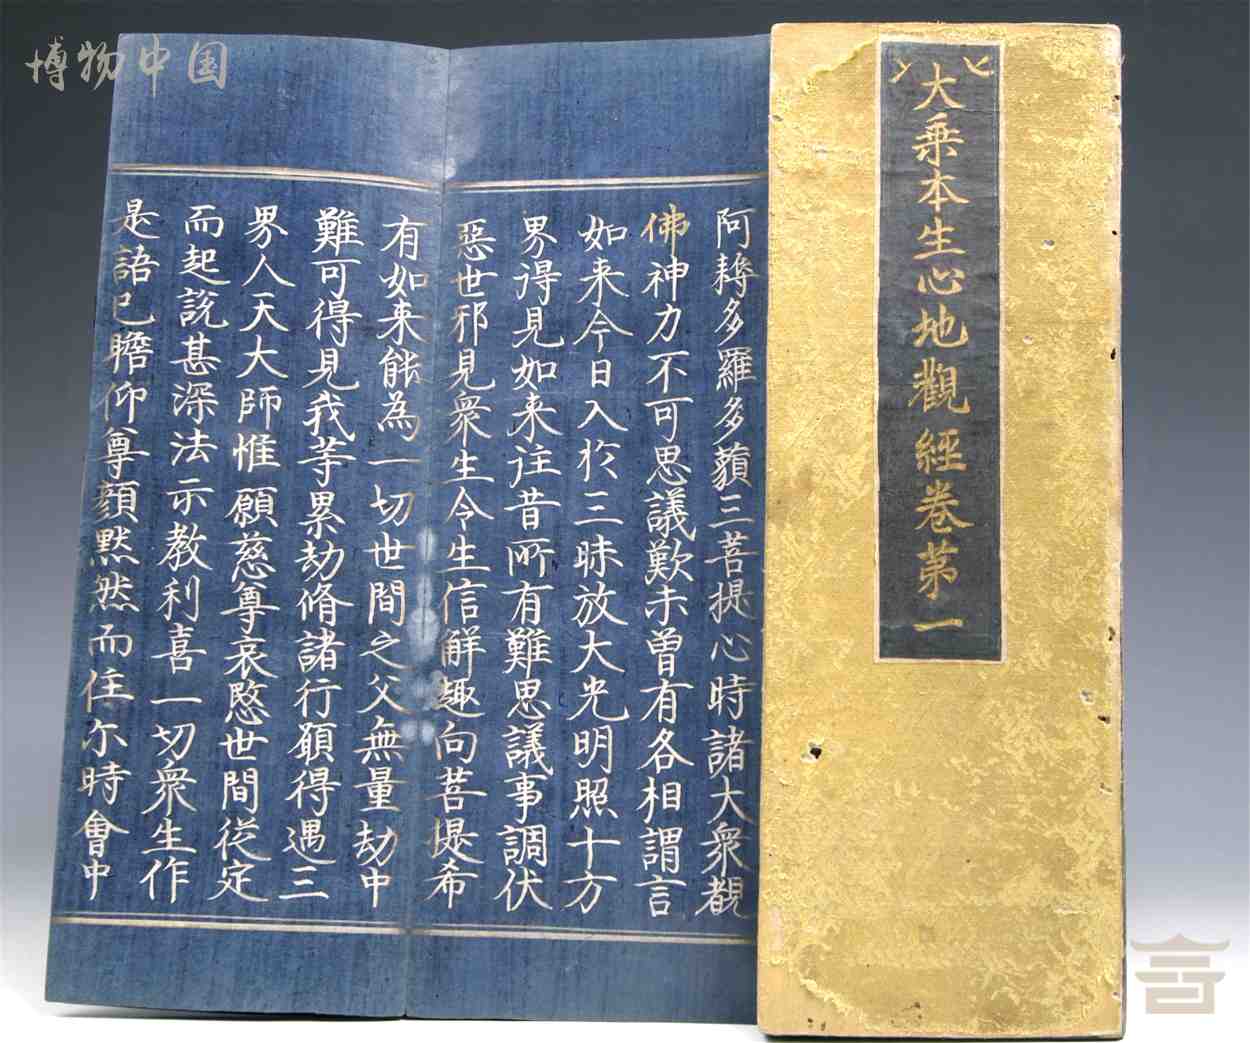 博物中国
大乗本生心地觀經卷苐一
阿耨多羅多藐三菩提心時諸大衆覩
佛神力不可思議歎未曾有各相謂言
如来今日入於三昧放大光明照十方
界得見如来往昔所有難思議事調伏
惡世邪見衆生令生信解趣向菩提希
有如来能為一切世間之父無量劫中
難可得見我等累劫脩諸行願得遇三
界人天大師惟願慈尊哀愍世間從定
而起說甚深法示教利喜一切衆生作
是語已瞻仰尊顏默然而住尒時會中